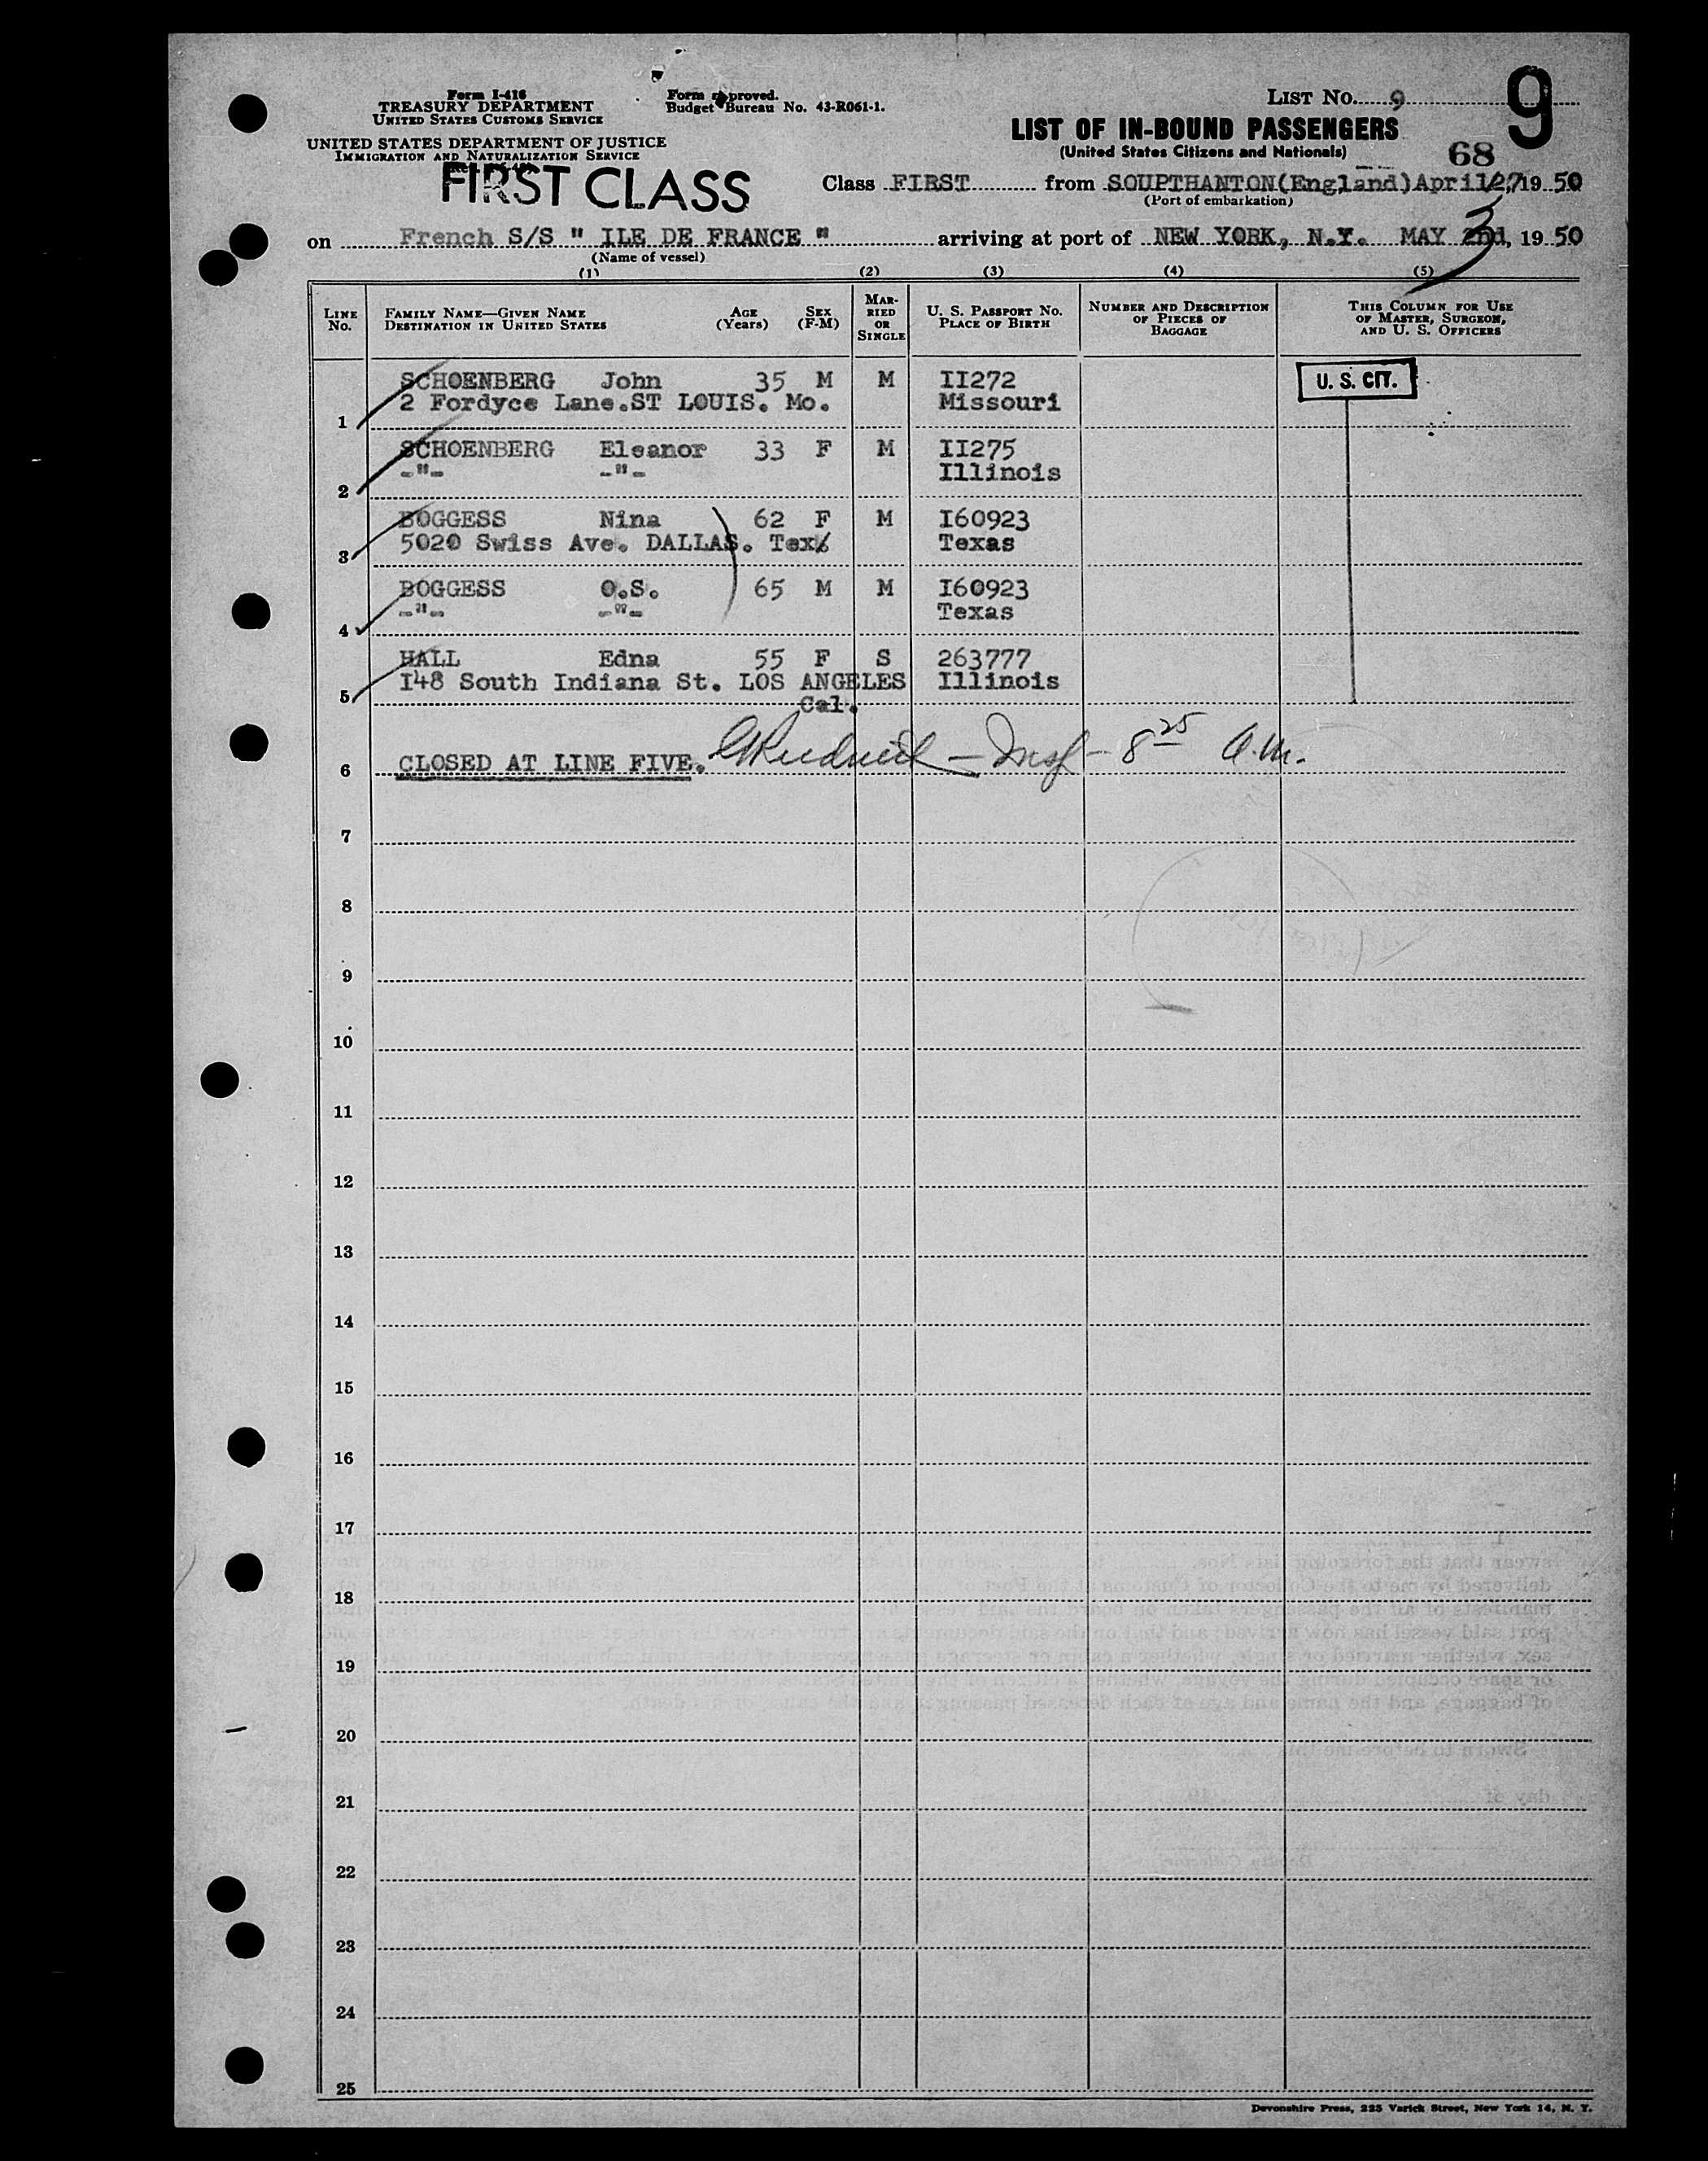 Form I-416
TREASURY DEPARTMENT
UNITED STATES CUSTOMS SERVICE
UNITED STATES DEPARTMENT OF JUSTICE
IMMIGRATION AND NATURALIZATION SERVICE
FIRST CLASS
Form approved.
Budget Bureau No. 43-R061-1.
LIST No. 9
9
LIST OF IN-BOUND PASSENGERS
(United States Citizens and Nationals)
68
Class FIRST from SOUPTHANTON(England) April 27, 19 50
(Port of embarkation)
on French S/S " ILE DE FRANCE " arriving at port of NEW YORK, N.Y. MAY 2nd, 3 19 50
(Name of vessel)
(1) (2) (3) (4) (5)
LINE No.
FAMILY NAME—GIVEN NAME
DESTINATION IN UNITED STATES
AGE (Years)
SEX (F-M)
MARRIED OR SINGLE
U. S. PASSPORT No.
PLACE OF BIRTH
NUMBER AND DESCRIPTION OF PIECES OF BAGGAGE
THIS COLUMN FOR USE OF MASTER, SURGEON, AND U. S. OFFICERS
SCHOENBERG John 35 M M II272 U. S. CIT.
1 2 Fordyce Lane.ST LOUIS. Mo. Missouri
SCHOENBERG Eleanor 33 F M II275
2 -"- -"- Illinois
BOGGESS Nina 62 F M I60923
3 5020 Swiss Ave. DALLAS. Tex Texas
BOGGESS O.S. 65 M M I60923
4 -"- -"- Texas
HALL Edna 55 F S 263777
5 I48 South Indiana St. LOS ANGELES Illinois
Cal.
6 CLOSED AT LINE FIVE. - Insp - 8 25 A.M.
7
8
9
10
11
12
13
14
15
16
17
18
19
20
21
22
23
24
25
Devonshire Press, 225 Varick Street, New York 14, N. Y.